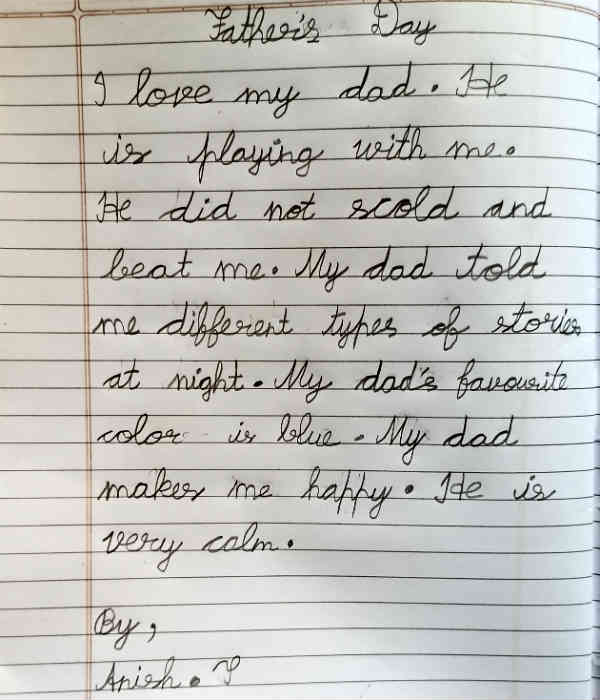 Father's Day
I love my dad. He
is playing with me.
He did not scold and
beat me. My dad told
me different types of stories
at night. My dad's favourite
color is blue. My dad
makes me happy. He is
very calm.
By,
Anish.